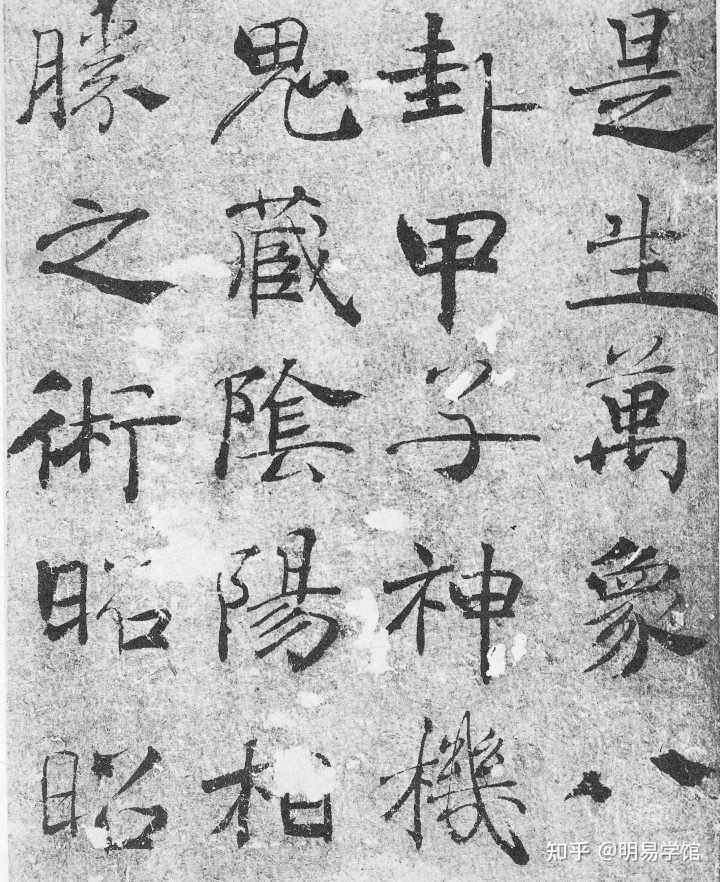 是生萬象八
卦甲子神機
鬼藏陰陽相
勝之術昭昭
知乎 @明易学馆